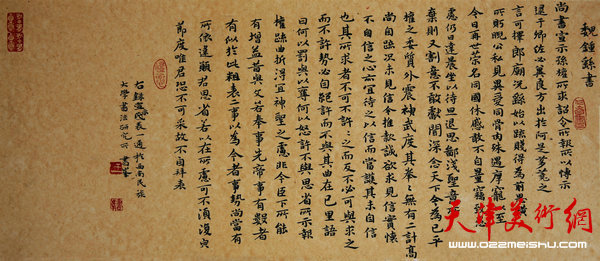 魏鍾繇書
尚書宣示孫權所求詔令所報所以博示
逮于卿佐必冀良方出於阿是芻蕘之
言可擇郎廟況繇始以疏賤得為前恩橫
所盱睨公私見異愛同骨肉殊遇厚寵以至
今日再世榮名同國休慼敢不自量竊致愚
慮仍日達晨坐以待旦退思鄙淺聖意所
棄則又割意不敢獻聞深念天下今為已平
權之委質外震神武度其拳拳無有二計高
尚自疏況未見信今推款誠欲求見信實懷
不自信之心亦宜待之以信而當護其未自信
也其所求者不可不許許之而反不必可與求之
而不許勢必自絕許而不與其曲在己里語
曰何以罰與以奪何以怒許不與思省所示報
權疏曲折得宜宜神聖之慮非今臣下所能
有增益昔與文若奉事先帝事有數者
有似於此粗表二事以為今者事勢尚當有
所依違願君思省若以在所慮可不須復貌
節度唯君恐不可采故不自拜表
右錄宣示表一通於西南民族
大學書法研究所
天津美術網
www.022meishu.com